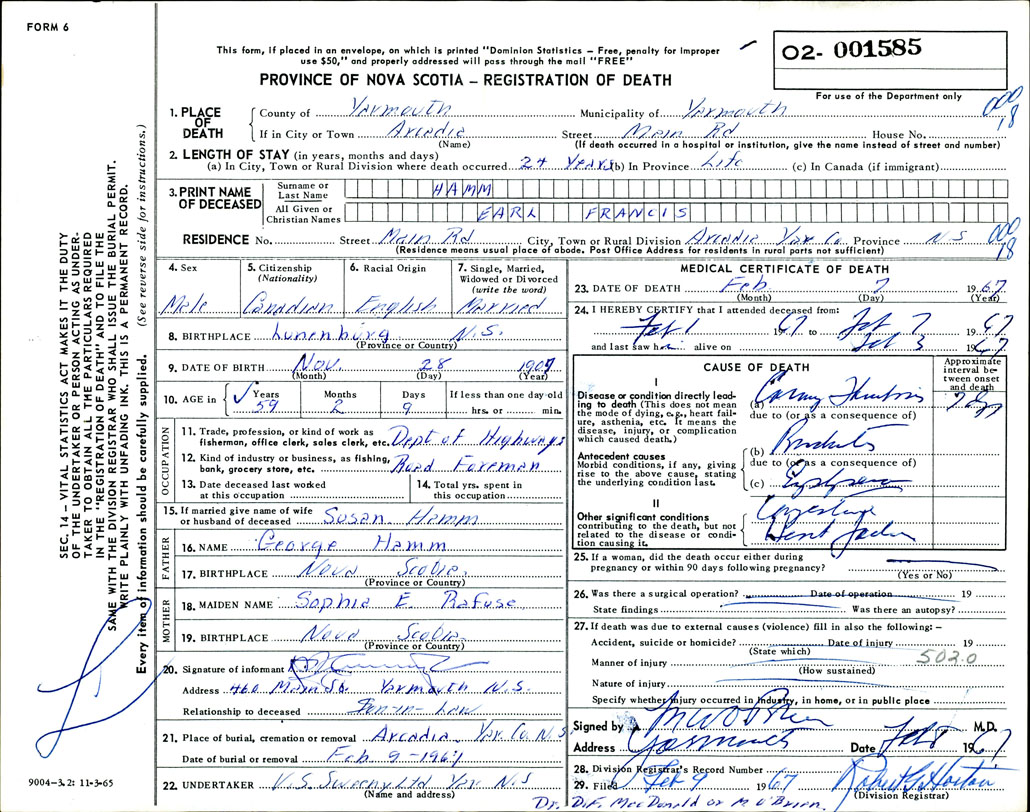 FORM 6
This form, if placed in an envelope, on which is printed "Dominion Statistics – Free, penalty for improper
use $50," and properly addressed will pass through the mail "FREE"
PROVINCE OF NOVA SCOTIA – REGISTRATION OF DEATH
02- 001585
For use of the Department only
1. PLACE OF DEATH
County of Yarmouth Municipality of Yarmouth
000 18
If in City or Town Arcadia Street Main Rd House No.
(Name) (If death occurred in a hospital or institution, give the name instead of street and number)
2. LENGTH OF STAY (in years, months and days)
(a) In City, Town or Rural Division where death occurred 24 Years (b) In Province Life (c) In Canada (if immigrant)
3. PRINT NAME OF DECEASED
Surname or Last Name HAMM
All Given or Christian Names EARL FRANCIS
RESIDENCE No. Street Main Rd City, Town or Rural Division Arcadia Yar Co. Province N S 000 18
(Residence means usual place of abode. Post Office Address for residents in rural parts not sufficient)
SEC. 14 – VITAL STATISTICS ACT MAKES IT THE DUTY
OF THE UNDERTAKER OR PERSON ACTING AS UNDER-
TAKER TO OBTAIN ALL THE PARTICULARS REQUIRED
IN THE "REGISTRATION OF DEATH" AND TO FILE THE
SAME WITH THE DIVISION REGISTRAR WHO SHALL ISSUE THE BURIAL PERMIT.
WRITE PLAINLY WITH UNFADING INK. THIS IS A PERMANENT RECORD.
Every item of information should be carefully supplied. (See reverse side for instructions.)
4. Sex
Male
5. Citizenship (Nationality)
Canadian
6. Racial Origin
English
7. Single, Married, Widowed or Divorced (write the word)
Married
8. BIRTHPLACE Lunenburg N.S.
(Province or Country)
9. DATE OF BIRTH Nov. 28 1907
(Month) (Day) (Year)
10. AGE in Years Months Days If less than one day old
59 2 9 hrs. or min.
OCCUPATION
11. Trade, profession, or kind of work as
fisherman, office clerk, sales clerk, etc. Dept of Highways
12. Kind of industry or business, as fishing,
bank, grocery store, etc. Road Foreman
13. Date deceased last worked
at this occupation
14. Total yrs. spent in
this occupation
15. If married give name of wife
or husband of deceased Susan Hamm
FATHER
16. NAME George Hamm
17. BIRTHPLACE Nova Scotia
(Province or Country)
MOTHER
18. MAIDEN NAME Sophia E. Rafuse
19. BIRTHPLACE Nova Scotia
(Province or Country)
20. Signature of informant
Address 460 Main St. Yarmouth N.S.
Relationship to deceased Son-in-Law
21. Place of burial, cremation or removal Arcadia Yar Co. N.S.
Date of burial or removal Feb 9 - 1967
22. UNDERTAKER V.S. Sweeny Ltd Yar N.S
(Name and address)
9004-3.2: 11-3-65
MEDICAL CERTIFICATE OF DEATH
23. DATE OF DEATH Feb 7 1967
(Month) (Day) (Year)
24. I HEREBY CERTIFY that I attended deceased from:
Feb 1 1967 to Feb 7 1967
and last saw him alive on Feb 3 1967
CAUSE OF DEATH
Approximate interval between onset and death
I
Disease or condition directly lead-
ing to death (This does not mean
the mode of dying, e.g., heart fail-
ure, asthenia, etc. It means the
disease, injury, or complication
which caused death.)
(a) Coronary Thrombosis
due to (or as a consequence of)
Antecedent causes
Morbid conditions, if any, giving
rise to the above cause, stating
the underlying condition last.
(b) Bronchitis
due to (or as a consequence of)
(c) Emphysema
II
Other significant conditions
contributing to the death, but not
related to the disease or condi-
tion causing it.
Congestive
Heart Failure
25. If a woman, did the death occur either during
pregnancy or within 90 days following pregnancy?
(Yes or No)
26. Was there a surgical operation? Date of operation 19
State findings Was there an autopsy?
27. If death was due to external causes (violence) fill in also the following: –
Accident, suicide or homicide? Date of injury 19
(State which)
502.0
Manner of injury
(How sustained)
Nature of injury
Specify whether injury occurred in Industry, in home, or in public place
Signed by M W O'Brien M.D.
Address Yarmouth Date Feb 8 1967
28. Division Registrar's Record Number
29. Filed Feb 9 1967 Robert G Horton
(Division Registrar)
Dr. D.F. MacDonald or M O'Brien.